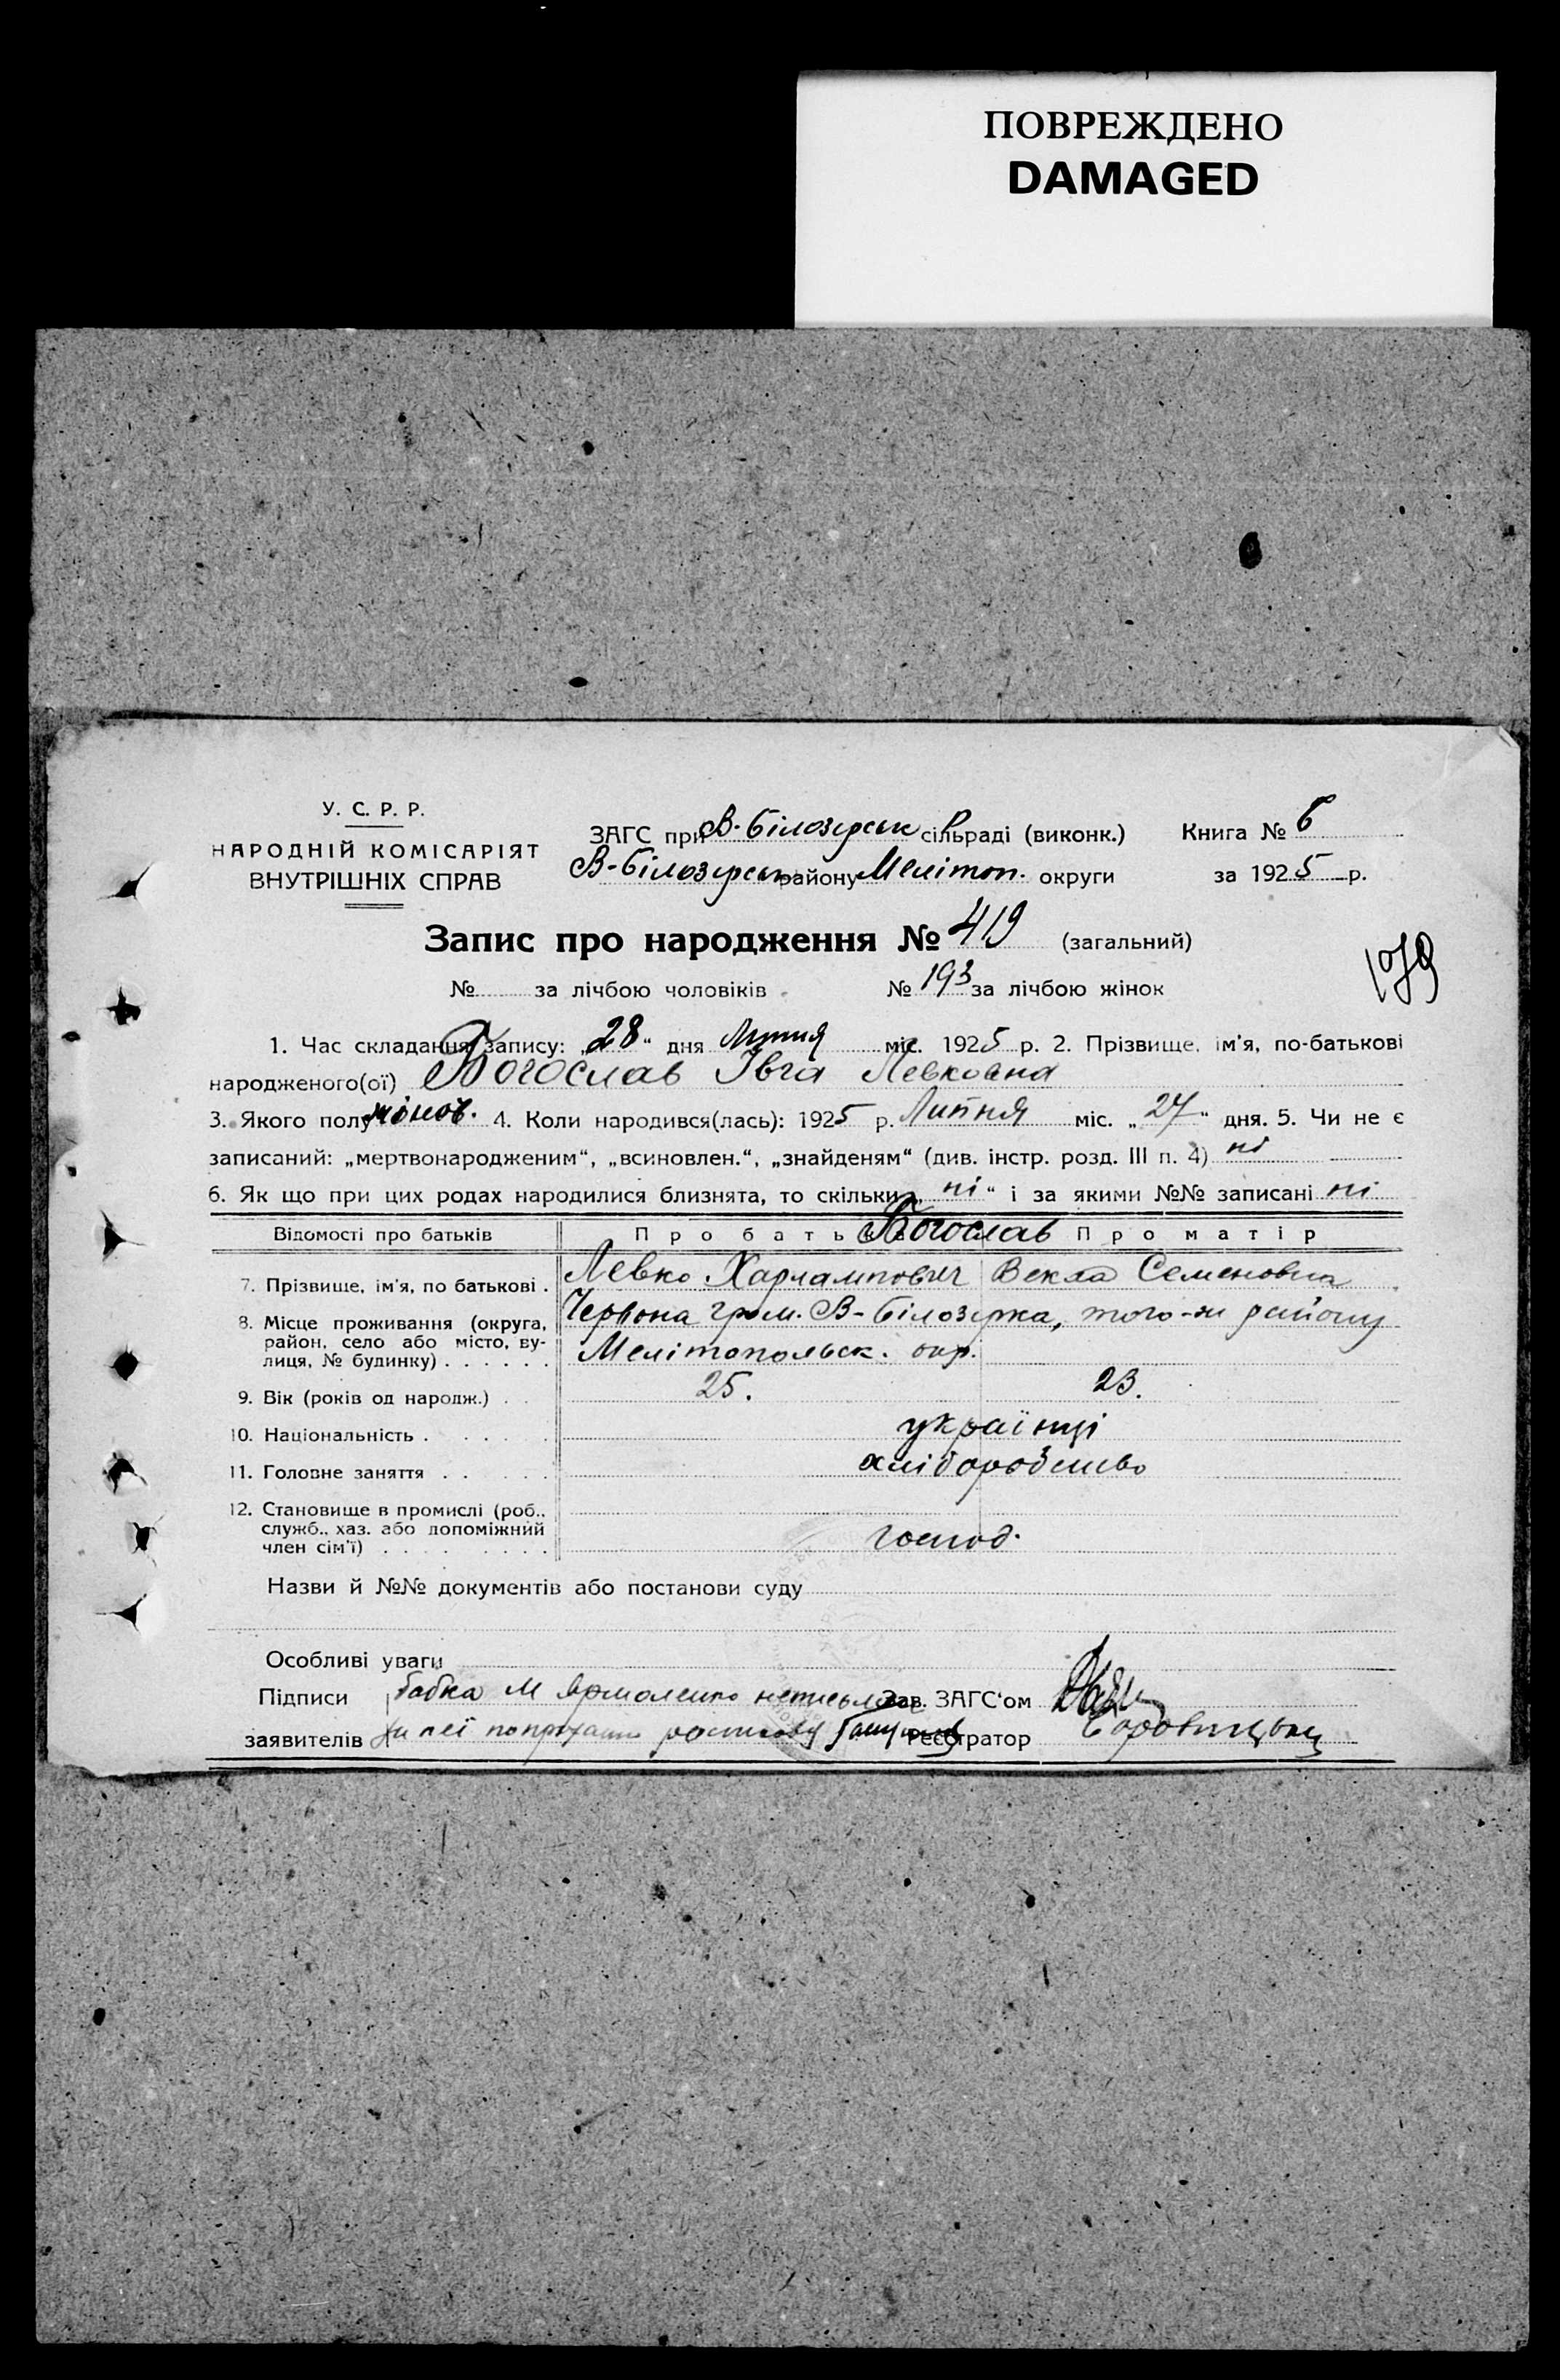 ПОВРЕЖДЕНО
DAMAGED
У. С. Р. Р.
НАРОДНІЙ КОМІСАРІЯТ
ВНУТРІШНІХ СПРАВ
ЗАГС при В-Білозерськ сільраді (виконк.) Книга № 6
В-Білозерськ району Мелітоп. округи за 1925 р.
Запис про народження № 419 (загальний)
179
№ за лічбою чоловіків № 193 за лічбою жінок
1. Час складання запису: „28“ дня Липня міс. 1925 р. 2. Прізвище, ім'я, по-батькові
народженого(ої) Богослав Івга Левковна
3. Якого полу жіноч. 4. Коли народився(лась): 1925 р. Липня міс. „27“ дня. 5. Чи не є
записаний: „мертвонародженим“, „всиновлен.“, „знайденям“ (див. інстр. розд. III п. 4) ні
6. Як що при цих родах народилися близнята, то скільки „ні“ і за якими №№ записані ні
Відомості про батьків Про батька Богослав Про матір
7. Прізвище, ім'я, по батькові . Левко Харлампович Векла Семеновна
8. Місце проживання (округа, Червона гром. В-Білозерка, того-ж району
район, село або місто, ву-
лиця, № будинку) . . . . . . Мелітопольськ. окр.
9. Вік (років од народж.) . . 25. 23.
10. Національність . . . . . українці
11. Головне заняття . . . . . хліборобство
12. Становище в промислі (роб.,
служб., хаз. або допоміжний
член сім'ї) . . . . . . . . господ.
Назви й №№ документів або постанови суду
Особливі уваги
Підписи бабка М Ярмоленко неписьмен Зав. ЗАГС'ом
заявителів за неї Реєстратор